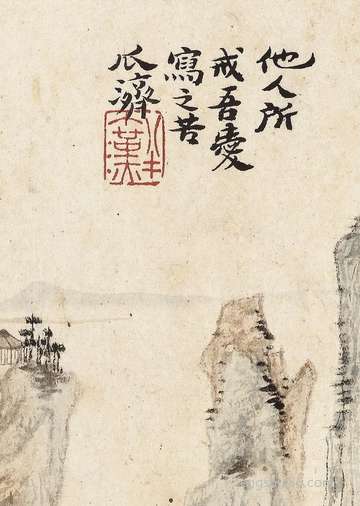 他人所
戒吾愛
寫之苦
瓜濟